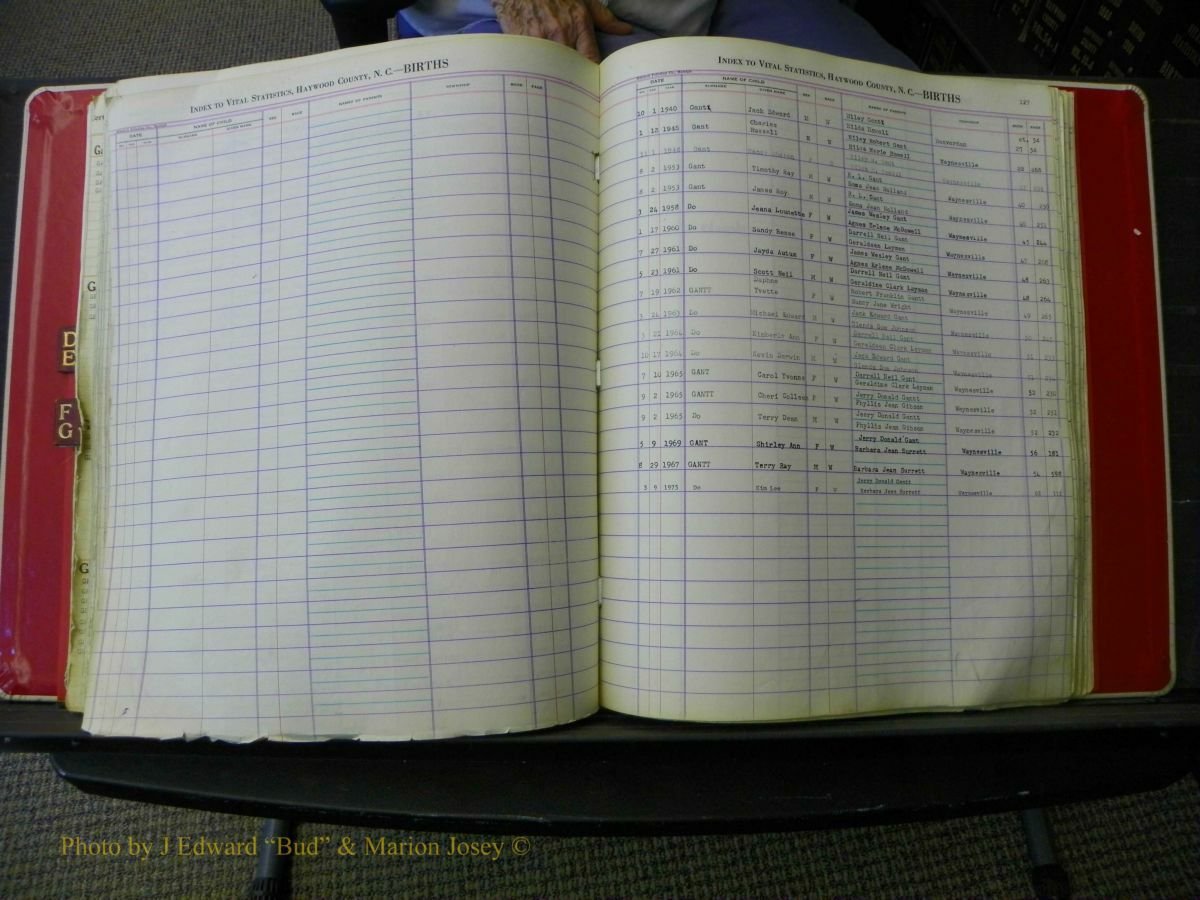 INDEX TO VITAL STATISTICS, HAYWOOD COUNTY, N. C.—BIRTHS
DATE NAME OF CHILD SEX RACE NAMES OF PARENTS TOWNSHIP BOOK PAGE
SURNAME GIVEN NAME
D
E
F
G
INDEX TO VITAL STATISTICS, HAYWOOD COUNTY, N. C.—BIRTHS 127
DATE NAME OF CHILD SEX RACE NAMES OF PARENTS TOWNSHIP BOOK PAGE
SURNAME GIVEN NAME
10 1 1940 Gantt Jack Edward M W
Hilda Howell Beaverdam
1 12 1945 Gant Charles Russell M W Wiley Robert Gant 27
Hilda Marie Howell Waynesville
8 2 1953 Gant Timothy Ray M W R. L. Gant
Roma Jean Holland Waynesville 40
8 2 1953 Gant James Roy M W R. L. Gant
Roma Jean Holland Waynesville 40 251
3 24 1958 Do Jeana Lounette F W James Wesley Gant
Agnes Erlene McDowell Waynesville 45 244
1 17 1960 Do Sandy Renee F W Darrell Neil Gant
Geraldeen Laymen Waynesville 47 268
7 27 1961 Do Jayda Autum F W James Wesley Gant
Agnes Erlene McDowell Waynesville 48 263
5 23 1961 Do Scott Neil M W Darrell Neil Gant
Geraldine Clark Layman Waynesville 48 264
7 19 1962 GANTT Daphne Yvette F W Robert Franklin Gantt
Nancy Jane Wright Waynesville 49 265
3 24 1963 Do Michael Edward M W Jack Edward Gant
Glenda Sue Johnson Waynesville 50
3 21 1964 Do Kimberly Ann F W Darrell Neil Gant
Geraldeen Clark Layman Waynesville 51
10 17 1964 Do Kevin Derwin M W Jack Edward Gant
Glenda Sue Johnson Waynesville 51
7 10 1965 GANT Carol Yvonne F W Darrell Neil Gant
Geraldine Clark Layman Waynesville 52 230
9 2 1965 GANTT Cheri Colleen F W Jerry Donald Gantt
Phyllis Jean Gibson Waynesville 52 231
9 2 1965 Do Terry Dean M W Jerry Donald Gantt
Phyllis Jean Gibson Waynesville 52 232
5 9 1969 GANT Shirley Ann F W Jerry Donald Gant
Barbara Jean Surrett Waynesville 56 181
8 29 1967 GANTT Terry Ray M W Barbara Jean Surrett Waynesville 54 598
3 9 1975 Do Kim Lee F W Jerry Donald Gantt
Barbara Jean Surrett Waynesville
Photo by J Edward “Bud” & Marion Josey ©